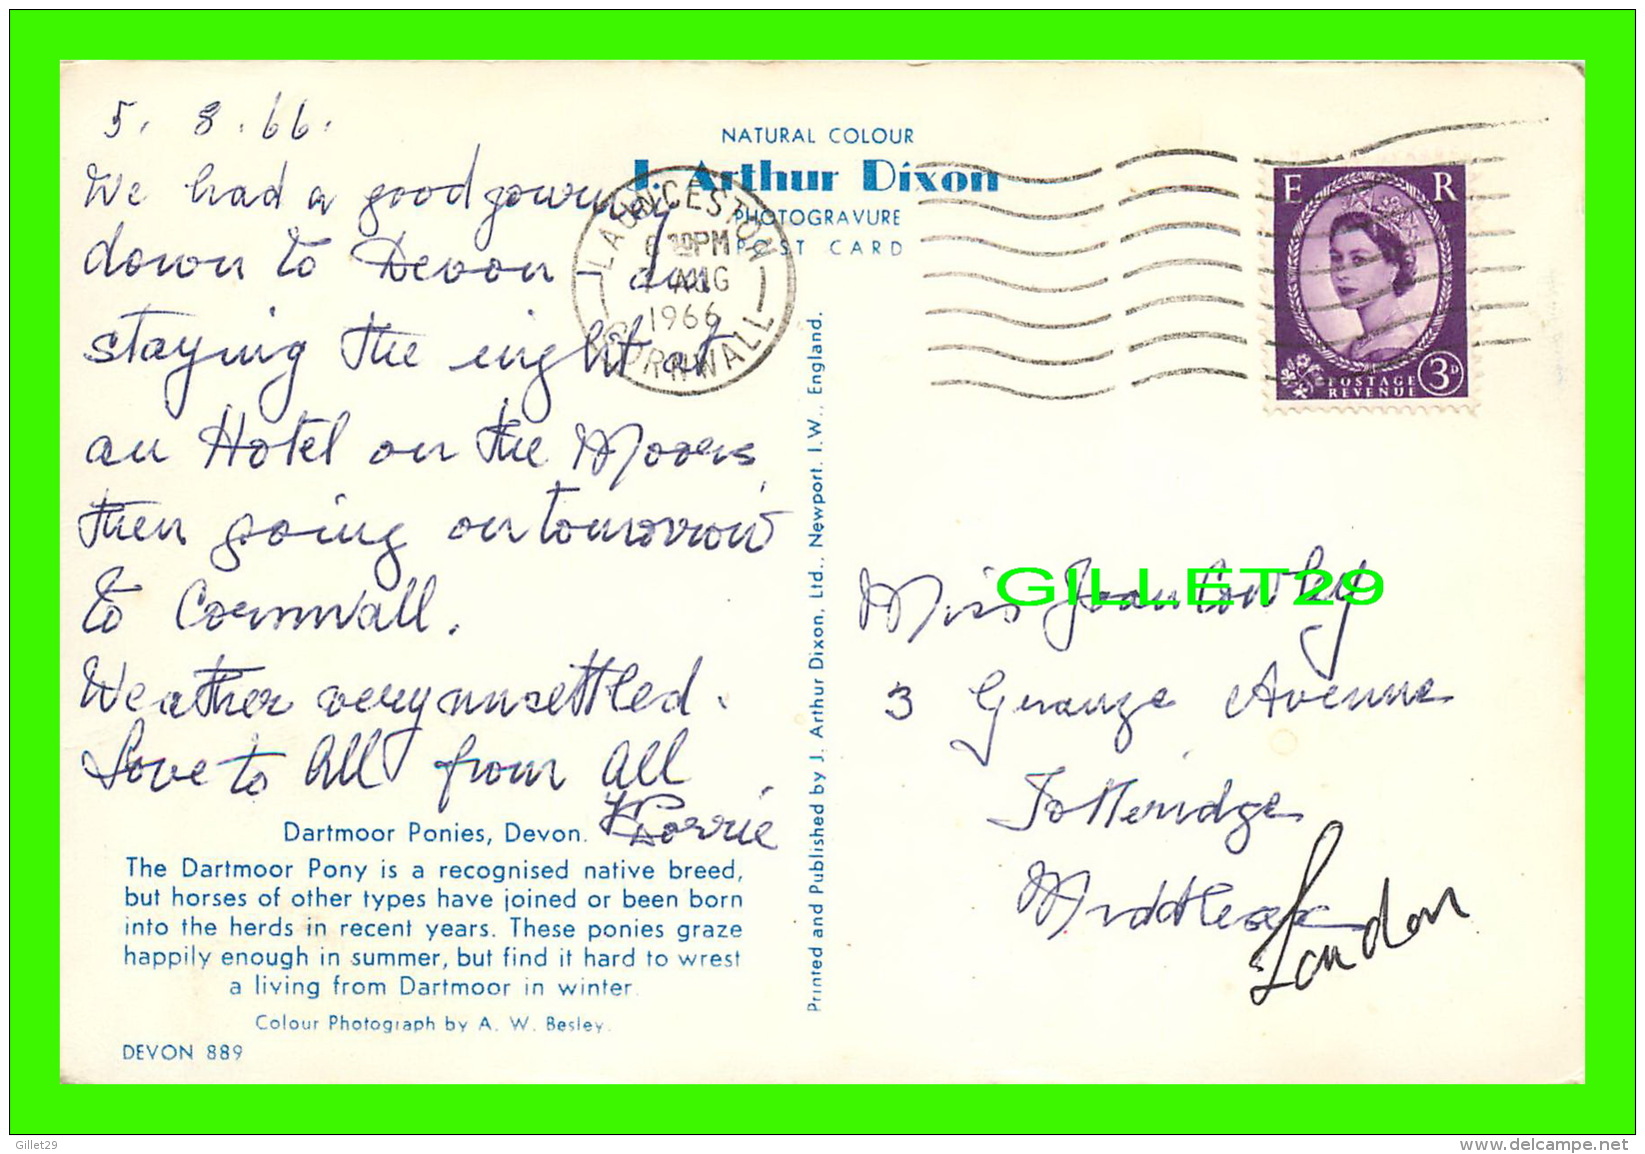 5. 8. 66.
We had a good journey
down to Devon - am
staying the night at
an Hotel on the Moors,
then going on tomorrow
to Cornwall.
Weather very unsettled.
Love to All from all
Dorrie
Dartmoor Ponies, Devon.
The Dartmoor Pony is a recognised native breed,
but horses of other types have joined or been born
into the herds in recent years. These ponies graze
happily enough in summer, but find it hard to wrest
a living from Dartmoor in winter.
Colour Photograph by A. W. Besley.
DEVON 889
NATURAL COLOUR
J. Arthur Dixon
PHOTOGRAVURE
POST CARD
LAUNCESTON
PM
AUG
1966
CORNWALL
E R
POSTAGE
REVENUE
3D
Printed and Published by J. Arthur Dixon, Ltd., Newport. I.W., England.
GILLET29
Miss Joan Cowley
3 Grange Avenue
Totteridge
Middlesex
London
Gillet29
www.delcampe.net